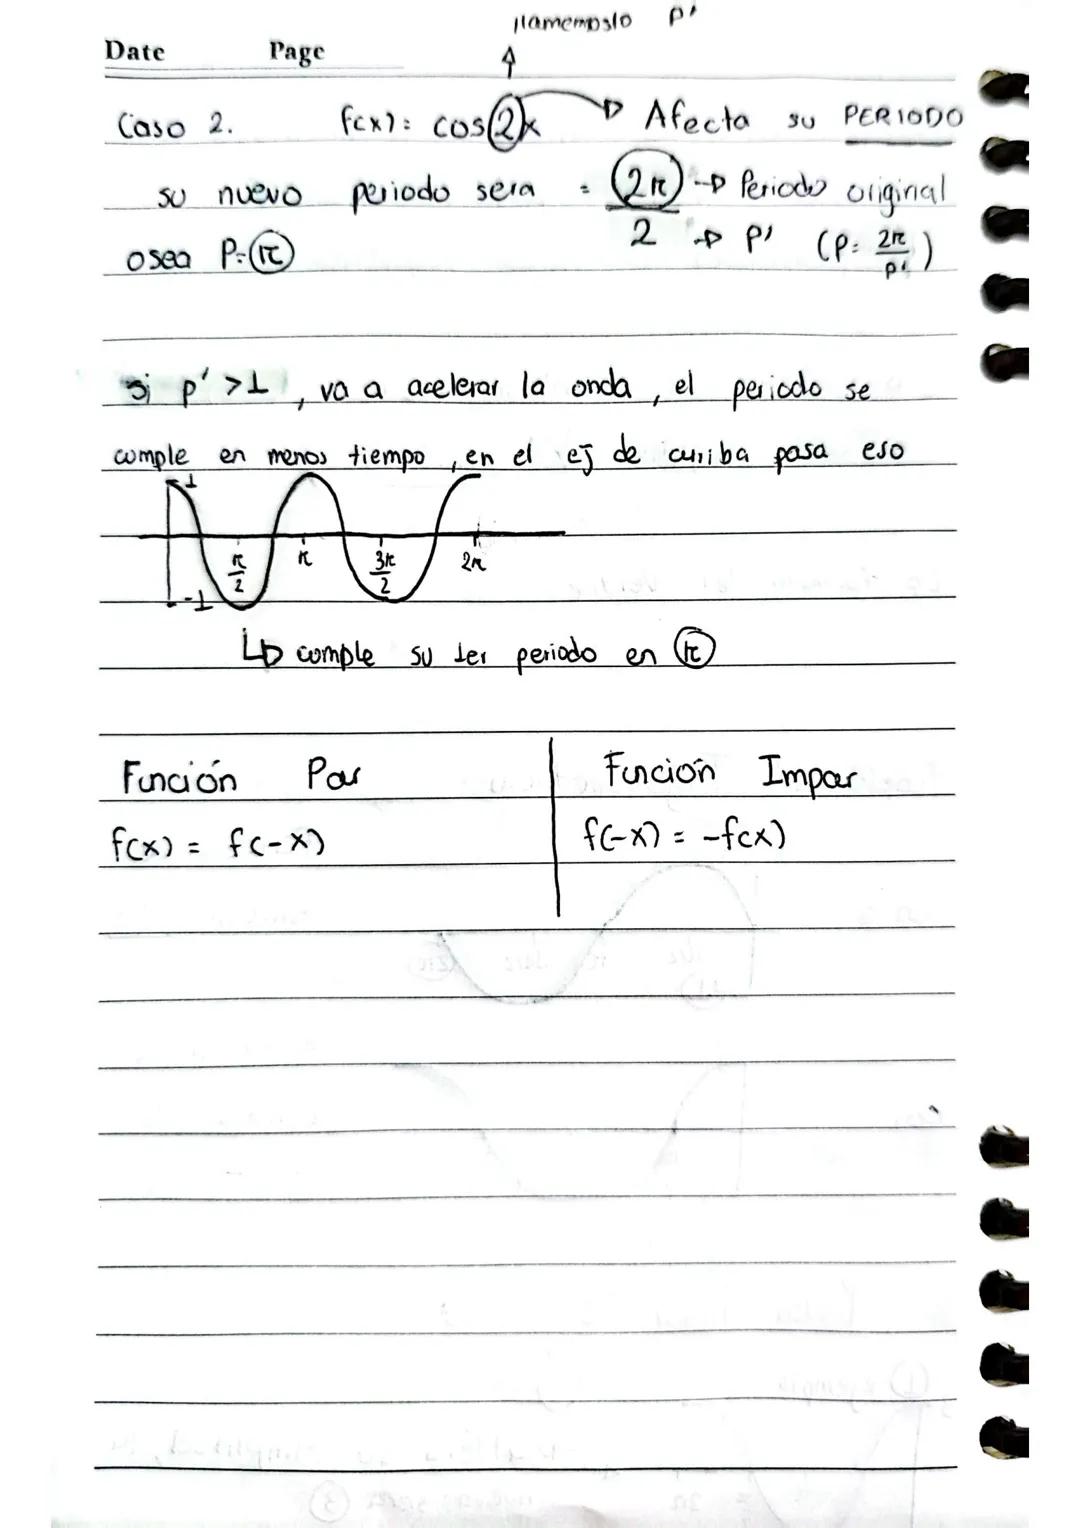 llamemoslo p'
Date Page
Caso 2. f(x) = cos 2x → Afecta su PERIODO
su nuevo periodo sera = 2π → Periodo original
2 → p' (P = 2π/p')
osea P = π
si p' > 1, va a acelerar la onda, el periodo se
cumple en menos tiempo, en el ej de arriba pasa eso
1
π/2 π 3π/2 2π
-1
↳ cumple su 1er periodo en π
Función Par
f(x) = f(-x)
Función Impar
f(-x) = -f(x)